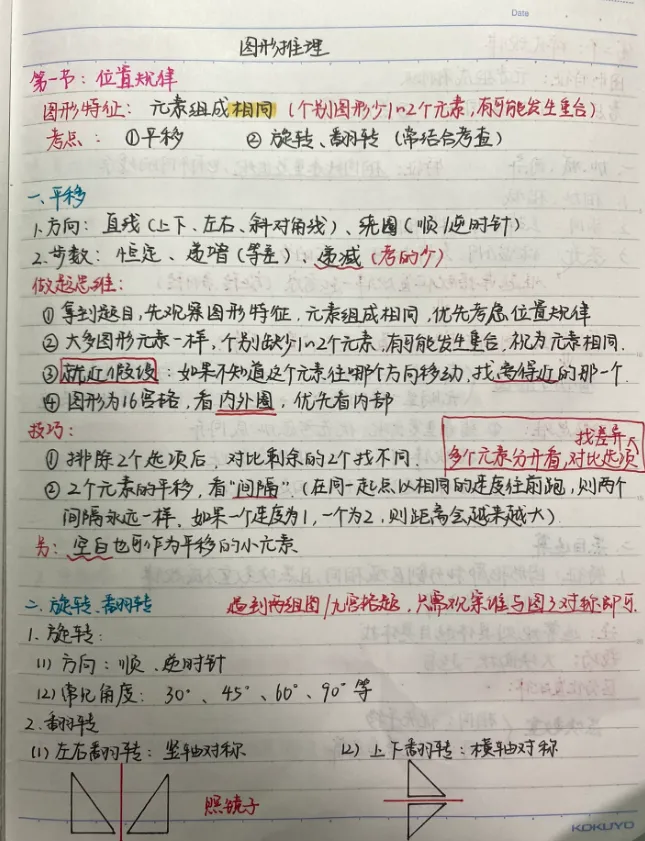 Date
图形推理
第一节：位置规律
图形特征：元素组成相同（个别图形少1~2个元素，有可能发生重合）
考点：①平移 ②旋转、翻转（常结合考查）
一、平移
1.方向：直线（上下、左右、斜对角线）、绕圈（顺/逆时针）
2.步数：恒定、递增（等差）、递减（考的少）
做题思维：
①拿到题目，先观察图形特征，元素组成相同，优先考虑位置规律
②大多图形元素一样，个别缺少1~2个元素，有可能发生重合，视为元素相同.
③就近假设：如果不知道这个元素往哪个方向移动，找离得近的那一个.
④图形为16宫格，看内外圈，优先看内部
技巧：
找差异
①排除2个选项后，对比剩余的2个找不同.
多个元素分开看，对比选项
②2个元素的平移，看"间隔"（在同一起点以相同的速度往前跑，则两个
间隔永远一样，如果一个速度为1，一个为2，则距离会越来越大）
另：空白也可作为平移的小元素
二、旋转、翻转 遇到两组图/九宫格题，只需观察谁与图3对称即可.
1.旋转：
(1)方向：顺、逆时针
(2)常见角度：30°、45°、60°、90°等
2.翻转
(1)左右翻转：竖轴对称 (2)上下翻转：横轴对称
照镜子
KOKUYO